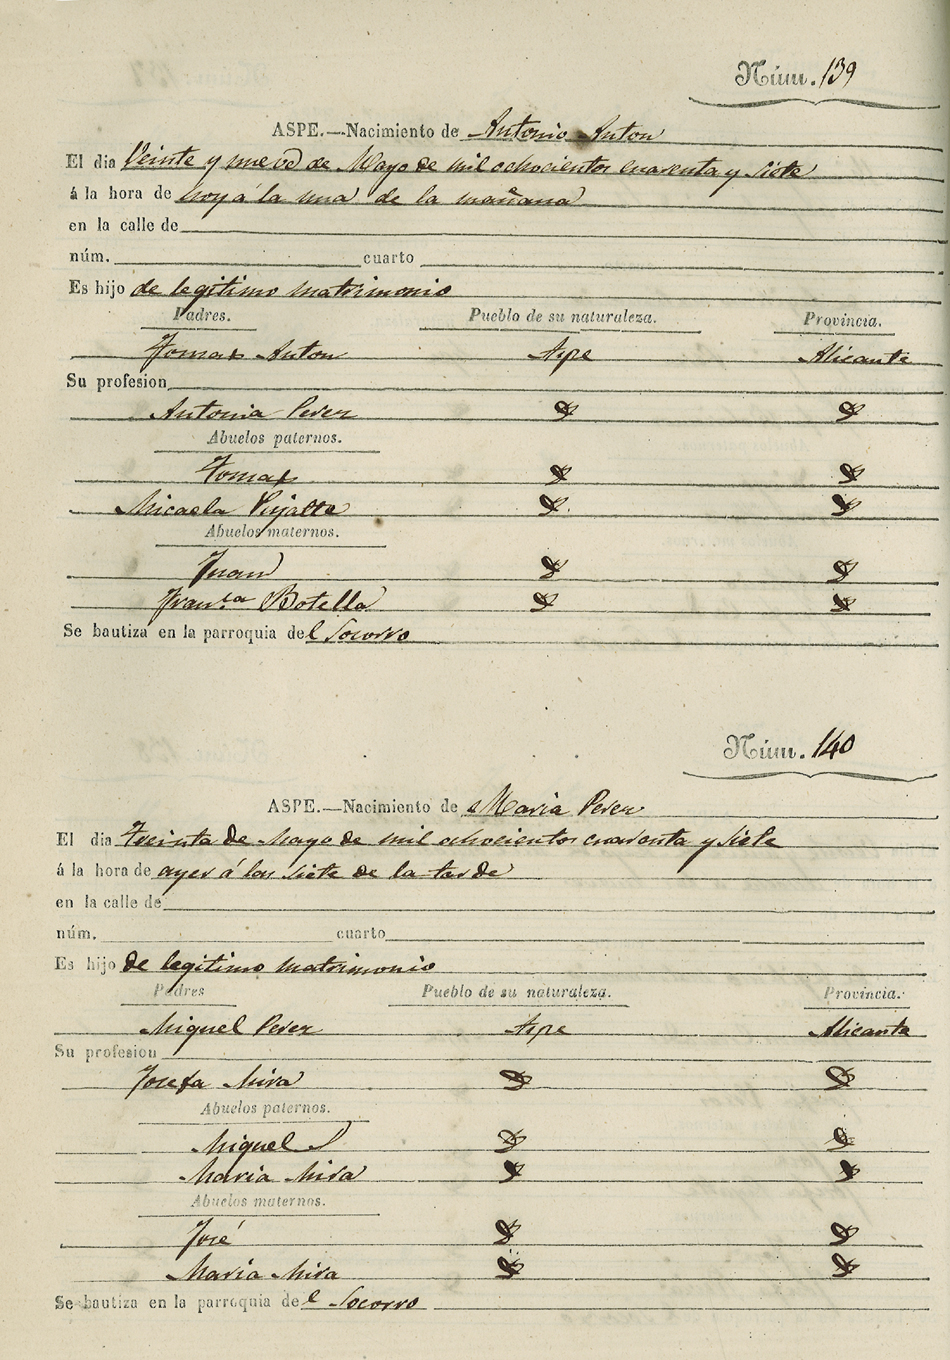 Núm. 139
ASPE.—Nacimiento de Antonio Anton
El dia Veinte y nueve de Mayo de mil ochocientos cuarenta y siete
á la hora de hoy á la una de la mañana
en la calle de
núm. cuarto
Es hijo de legitimo matrimonio
Padres. Pueblo de su naturaleza. Provincia.
Tomas Anton Aspe Alicante
Su profesion
Antonia Perez
Abuelos paternos.
Tomas
Micaela Pujalte
Abuelos maternos.
Juan
Fran.ca Botella
Se bautiza en la parroquia del Socorro
Núm. 140
ASPE.—Nacimiento de Maria Perez
El dia Treinta de Mayo de mil ochocientos cuarenta y siete
á la hora de ayer á las siete de la tarde
en la calle de
núm. cuarto
Es hijo de legitimo matrimonio
Padres Pueblo de su naturaleza. Provincia.
Miguel Perez Aspe Alicante
Su profesion
Josefa Mira
Abuelos paternos.
Miguel
Maria Mira
Abuelos maternos.
José
Maria Mira
Se bautiza en la parroquia del Socorro